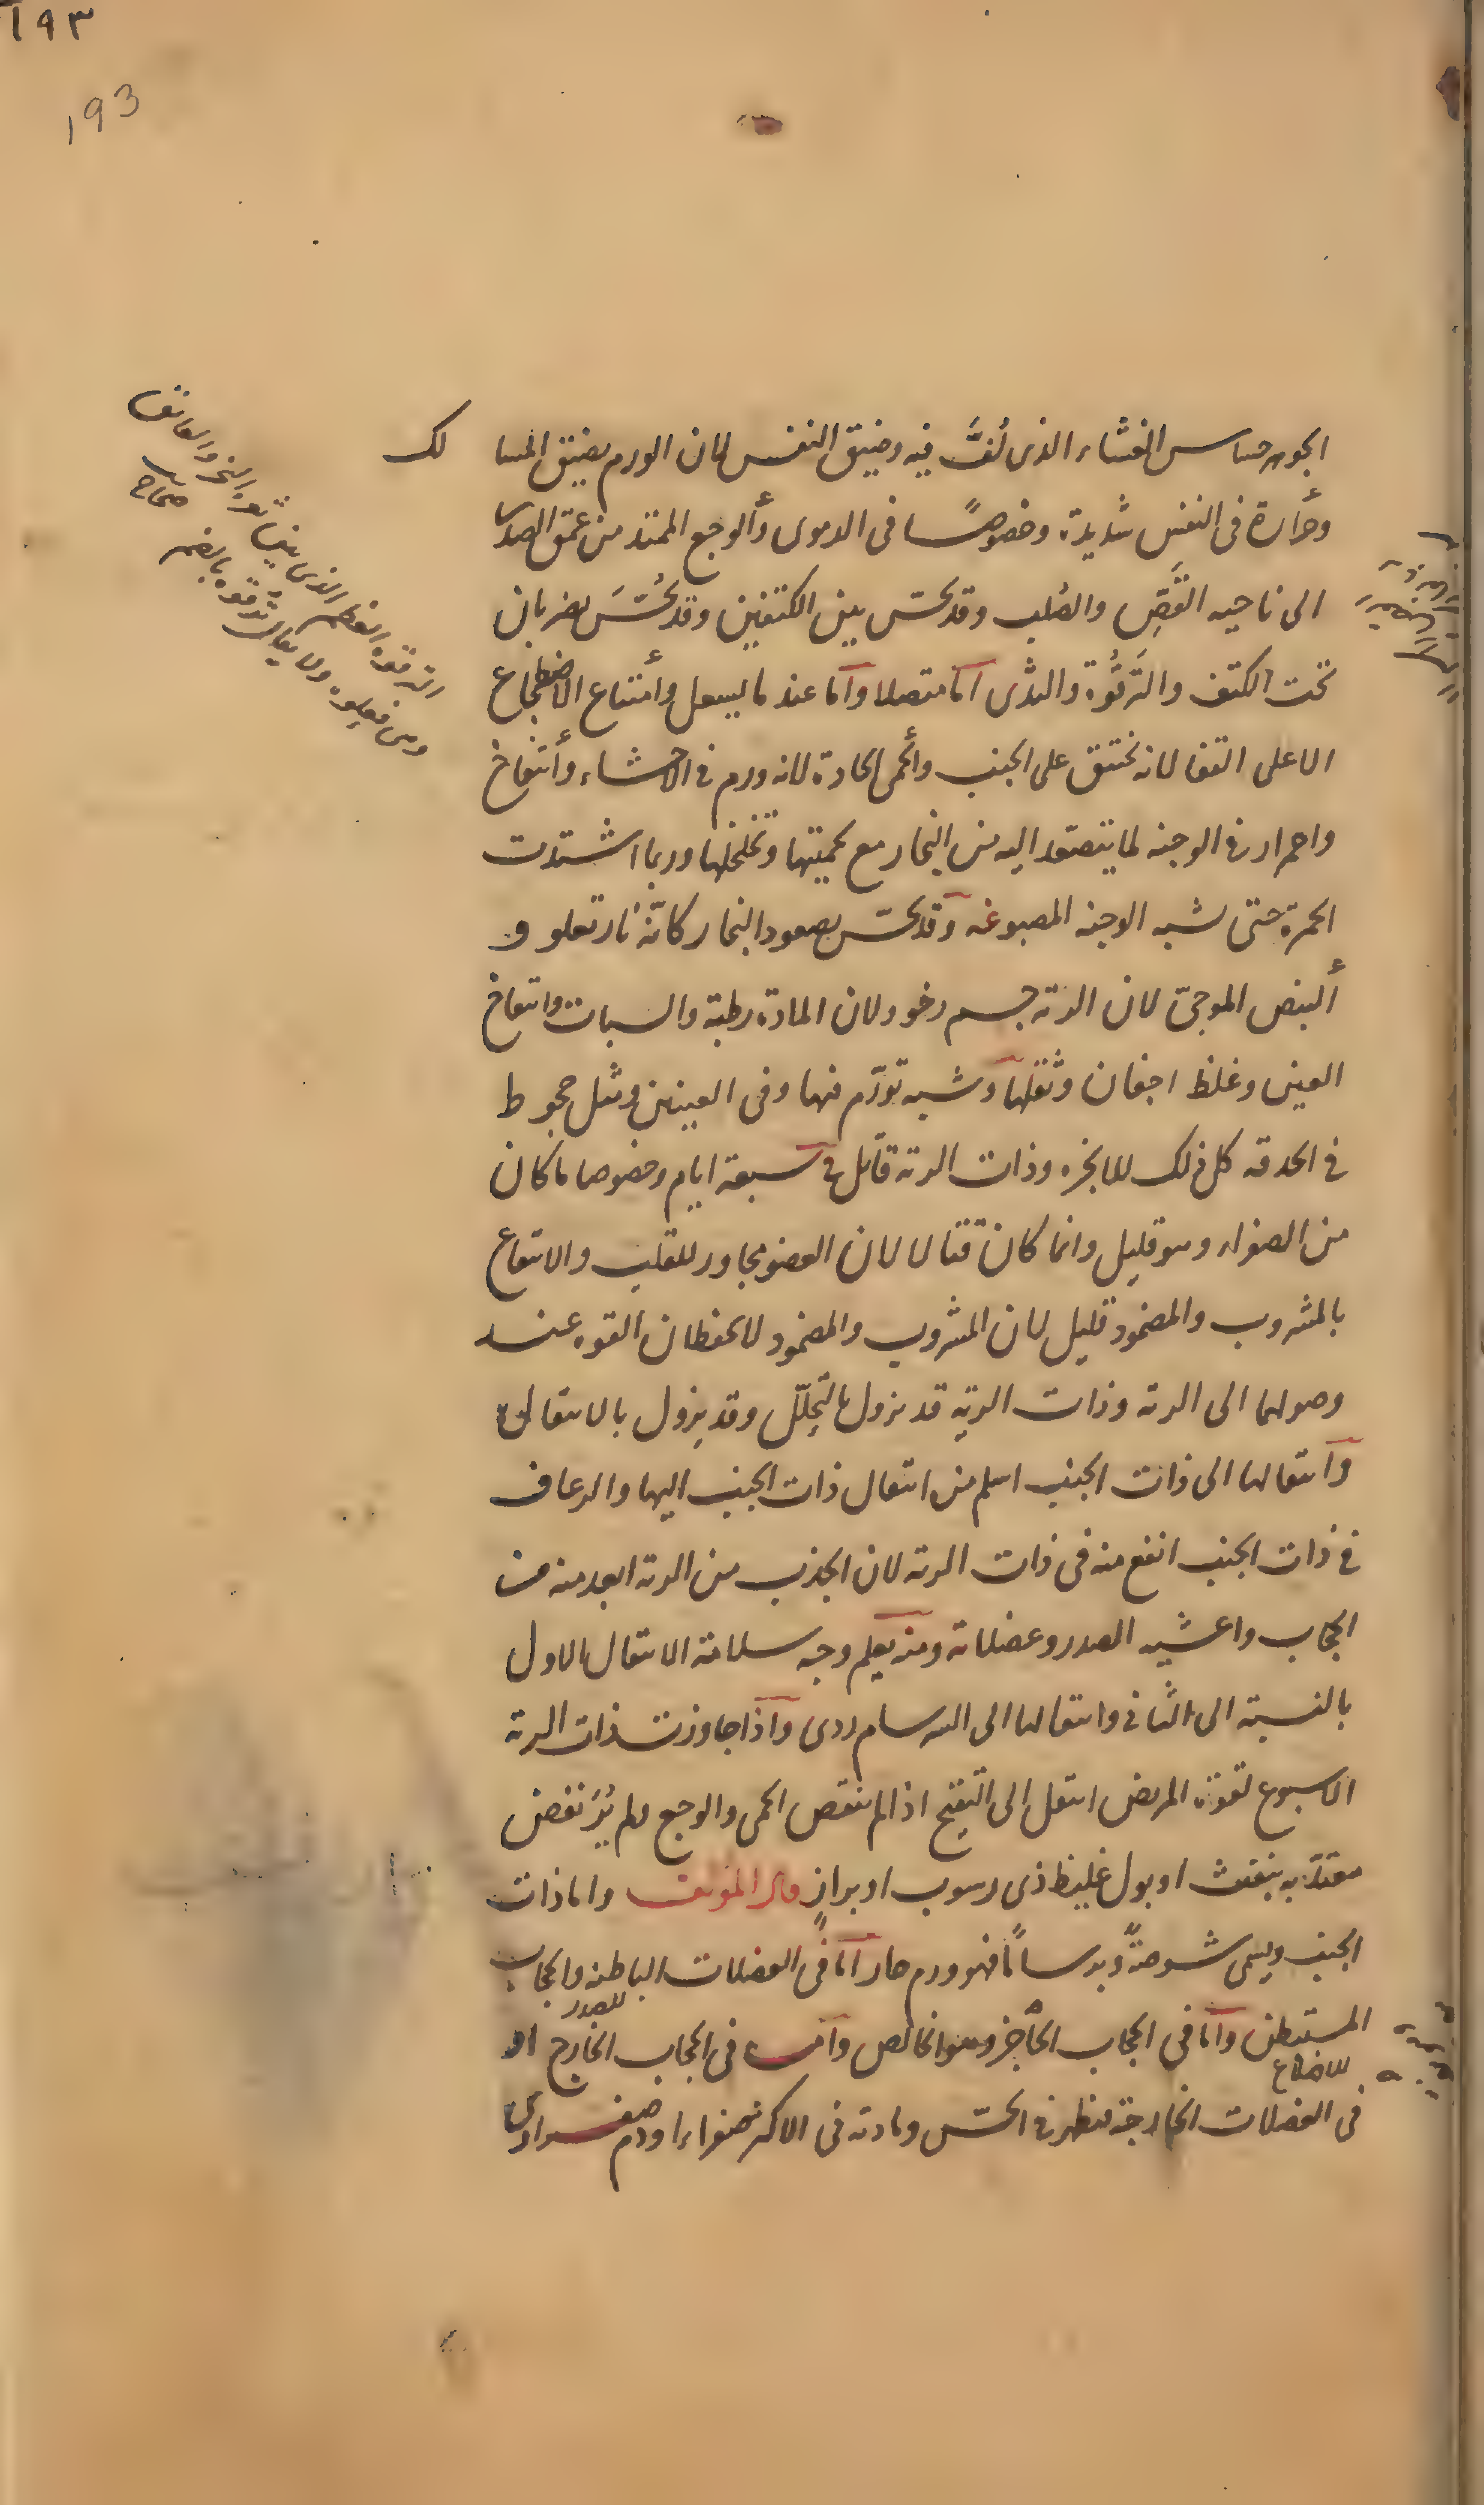 ١٩٣
193
الجوهر حساس الغشاء الذى لُفَّ فيه وضيق النفس لان الورم يضيق المسا لك
وحرارة فى النفس شديدة وخصوصًا فى الدموى وألوجع الممتد من عمق الصدر
الى ناحيه القَصِّ والصُلب وقد يحسّ بين الكتفين وقد يُحَسّ بضربان
تحت الكتف والتَرقُوة والثدى اما متصلا واما عند ما يسعل وأمتناع الاضطجاع
الا على القفا لانه يختنق على الجنب وألحمى الحادة لانه ورم فى الاحشاء وأنتفاخ
واحمرار فى الوجنه لما يتصعد اليه من البخار مع لحميتها وتخلخلها وربما اشتدت
الحمرة حتى تشبه الوجنه المصبوغه وقد يحسّ بصعود البخار كانّه نار تعلو و
ألنبض الموجىّ لان الرئة جسم رخو ولان المادة رطبة والسبات وانتفاخ
العين وغلظ اجفان وثقلها وشبه تورّم فيها وفى العينين ومثل جحوظ
فى الحدقه كل ذلك للابخره وذات الرئة قاتل فى سبعة ايام وخصوصا ما كان
من الصفراء وهو قليل وانما كان قتالا لان العضو مجاور للقلب والانتفاع
بالمشروب والمضمود قليل لان المشروب والمضمود لا يحفظان القوه عند
وصولهما الى الرئة وذات الرية قد يزول بالتحلّل وقد يزول بالانتقال
وانتقالها الى ذات الجنب اسلم من انتقال ذات الجنب اليها والرعاف
فى ذات الجنب انفع منه فى ذات الرئة لان الجذب من الرئة ابعد منه من
الحجاب واغشيه الصدر وعضلاته ومنه يعلم وجه سلامة الانتقال الاول
بالنسبة الى الثانى وانتقالها الى السرسام ردى واذا جاوزت ذات الرئة
الاسبوع لقوة المريض انتقل الى التقيّح اذا لم ينقص الحمى والوجع ولم يُرَ نفض
معتدّ به بنفث او بول غليظ ذى رسوب او براز قال المؤلف واما ذات
الجنب ويسمى شوصةً وبرسامًا فهو ورم حار اما فى العضلات الباطنه والحجاب
المستبطن للصدر واما فى الحجاب الحاجز وهو الخالص واما فى الحجاب الخارج او
للاضلاع
فى العضلات الخارجة فيظهر فى الحسّ ومادته فى الاكثر صفراء او دم صفراوى
الترقوه العظم الذى بين ثغره النحر والعاتق
وهى فعلوه ولا يقال تُرقوه بالضم صحاح